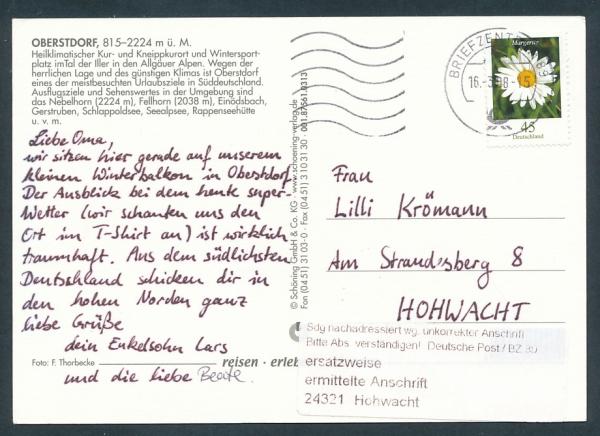 OBERSTDORF, 815–2224 m ü. M.
Heilklimatischer Kur- und Kneippkurort und Wintersport-
platz imTal der Iller in den Allgäuer Alpen. Wegen der
herrlichen Lage und des günstigen Klimas ist Oberstdorf
eines der meistbesuchten Urlaubsziele in Süddeutschland.
Ausflugsziele und Sehenswertes in der Umgebung sind
das Nebelhorn (2224 m), Fellhorn (2038 m), Einödsbach,
Gerstruben, Schlappoldsee, Seealpsee, Rappenseehütte
u. v. m.
Liebe Oma,
wir sitzen hier gerade auf unserem
kleinen Winterbalkon in Oberstdorf.
Der Ausblick bei dem heute super-
Wetter (wir schauten uns den
Ort im T-Shirt an) ist wirklich
traumhaft. Aus dem südlichsten
Deutschland schicken dir in
den hohen Norden ganz
liebe Grüße
dein Enkelsohn Lars
und die liebe Beate.
Foto: F. Thorbecke
reisen · erleb
© Schöning GmbH & Co. KG · www.schoening-verlag.de
Fon (04 51) 31 03-0 · Fax (04 51) 3 10 31 30 001.87561.0313
BRIEFZENTR 89
16.-3.08-15
Margerite
45
Deutschland
Frau
Lilli Krömann
Am Strandsberg 8
HOHWACHT
Sdg nachadressiert wg. unkorrekter Anschrift
Bitte Abs. verständigen! Deutsche Post / BZ
ersatzweise
ermittelte Anschrift
24321 Hohwacht